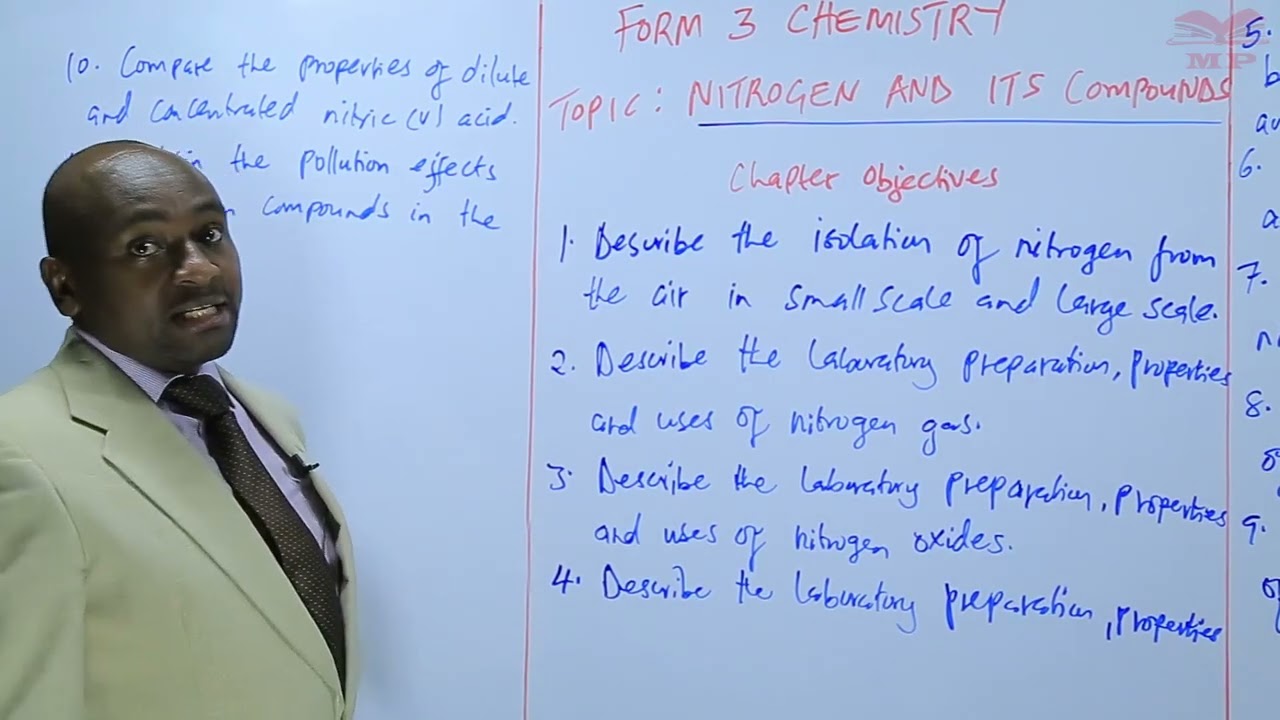 10. Compare the properties of dilute
and concentrated nitric (v) acid.
the pollution effects
compounds in the
FORM 3 CHEMISTRY
TOPIC: NITROGEN AND ITS COMPOUNDS
Chapter Objectives
1. Describe the isolation of nitrogen from
the air in small scale and large scale.
2. Describe the laboratory preparation, properties
and uses of nitrogen gas.
3. Describe the laboratory preparation, properties
and uses of nitrogen oxides.
4. Describe the laboratory preparation, properties
5.
6.
7.
8.
9.
MP